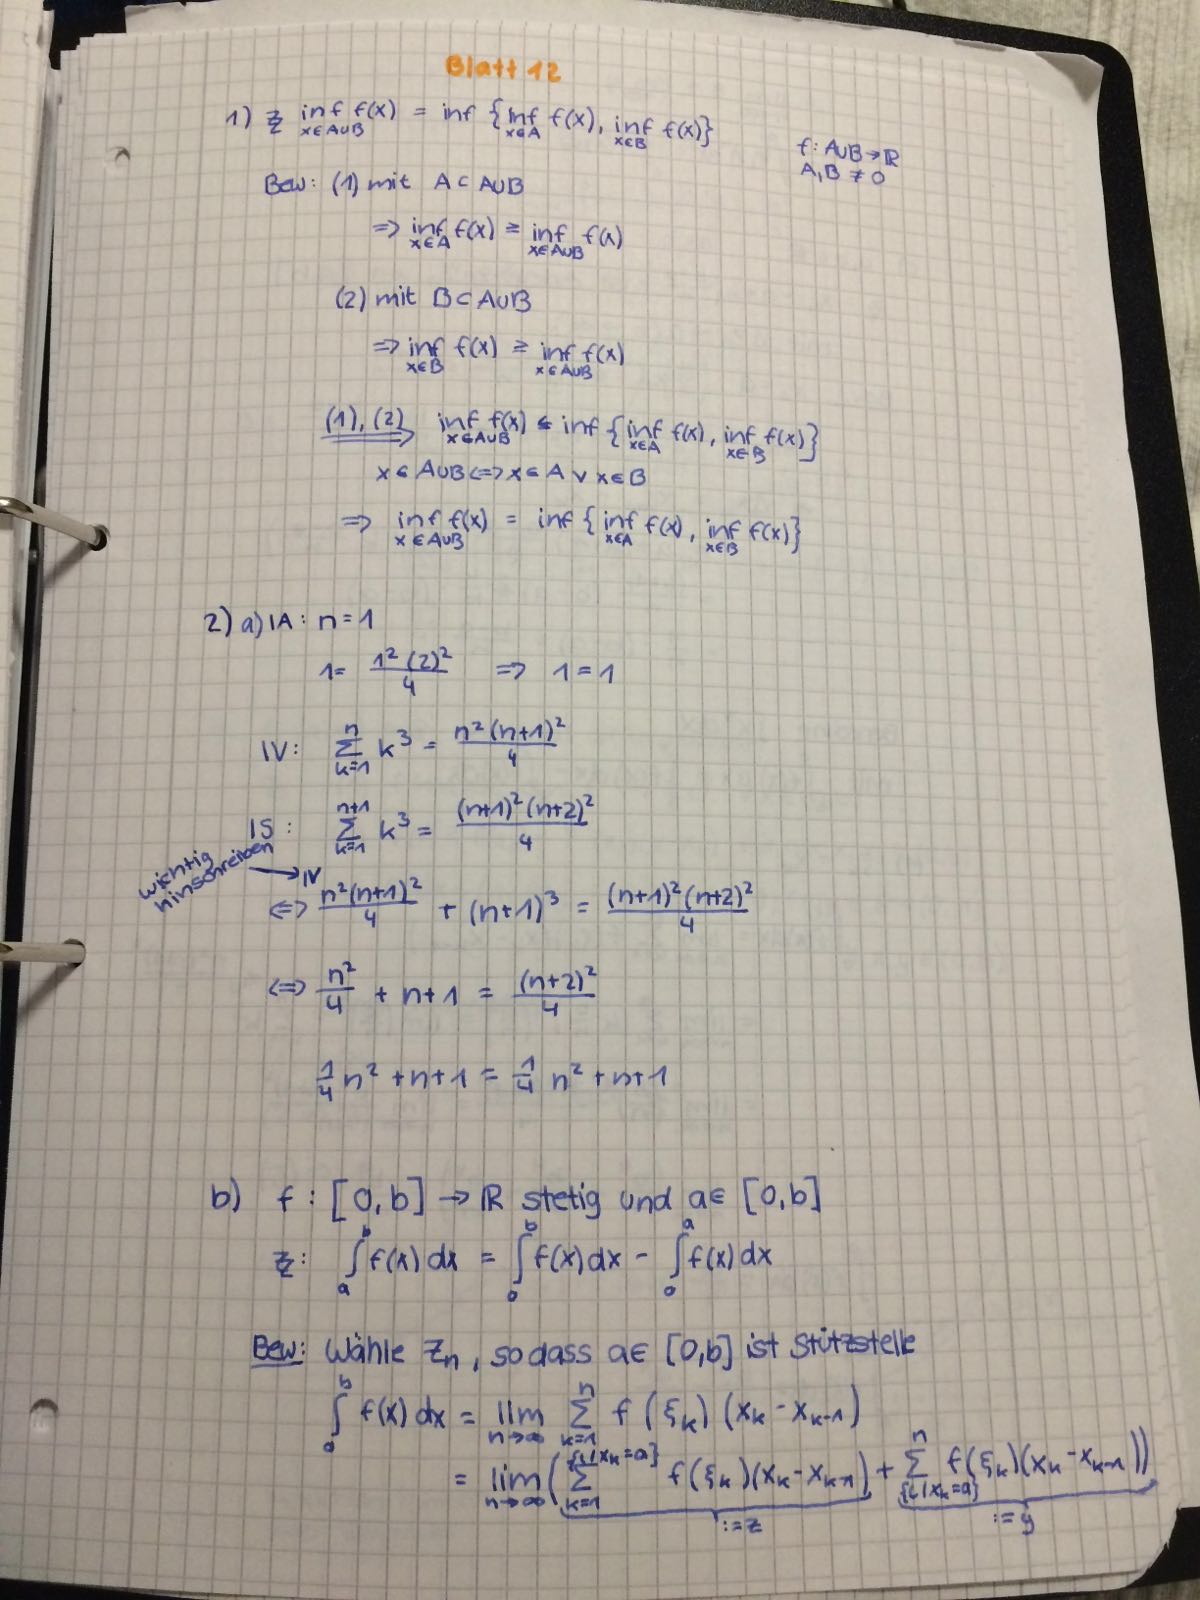 Blatt 12
1) zz inf_{x∈A∪B} f(x) = inf {inf_{x∈A} f(x), inf_{x∈B} f(x)}
f: A∪B→ℝ
A,B ≠ 0
Bew: (1) mit A⊂A∪B
⇒ inf_{x∈A} f(x) ≥ inf_{x∈A∪B} f(x)
(2) mit B⊂A∪B
⇒ inf_{x∈B} f(x) ≥ inf_{x∈A∪B} f(x)
(1), (2) ⇒ inf_{x∈A∪B} f(x) ≤ inf {inf_{x∈A} f(x), inf_{x∈B} f(x)}
x∈A∪B ⇔ x∈A ∨ x∈B
⇒ inf_{x∈A∪B} f(x) = inf {inf_{x∈A} f(x), inf_{x∈B} f(x)}
2) a) IA: n=1
1 = 1²(2)²/4 ⇒ 1=1
IV: ∑_{k=1}^{n} k³ = n²(n+1)²/4
IS: ∑_{k=1}^{n+1} k³ = (n+1)²(n+2)²/4
wichtig
hinschreiben → IV
⇔ n²(n+1)²/4 + (n+1)³ = (n+1)²(n+2)²/4
⇔ n²/4 + n+1 = (n+2)²/4
1/4 n² + n+1 = 1/4 n² + n+1
b) f: [0,b] → ℝ stetig und a∈ [0,b]
zz: ∫_a^b f(x) dx = ∫_0^b f(x) dx − ∫_0^a f(x) dx
Bew: Wähle Z_n, sodass a∈ [0,b] ist Stützstelle
∫_0^b f(x) dx = lim_{n→∞} ∑_{k=1}^{n} f(ξ_k) (x_k − x_{k-1})
= lim_{n→∞} (∑_{k=1}^{{l|x_k=a}} f(ξ_k)(x_k − x_{k-1}) + ∑_{{l|x_k=a}}^{n} f(ξ_k)(x_k − x_{k-1}))
:=z :=y